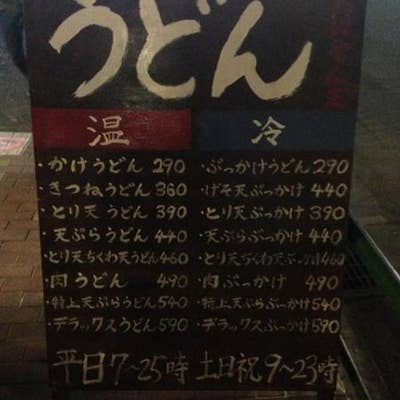 うどん
温 冷
・かけうどん 290 ・ぶっかけうどん 290
・きつねうどん 360 ・げそ天ぶっかけ 440
・とり天うどん 390 ・とり天ぶっかけ 390
・天ぷらうどん 440 ・天ぷらぶっかけ 440
・とり天ちくわ天うどん 460 ・とり天ちくわ天ぶっかけ 460
・肉うどん 490 ・肉ぶっかけ 490
・特上天ぷらうどん 540 ・特上天ぷらぶっかけ 540
・デラックスうどん 590 ・デラックスぶっかけ 590
平日7~25時 土日祝9~23時